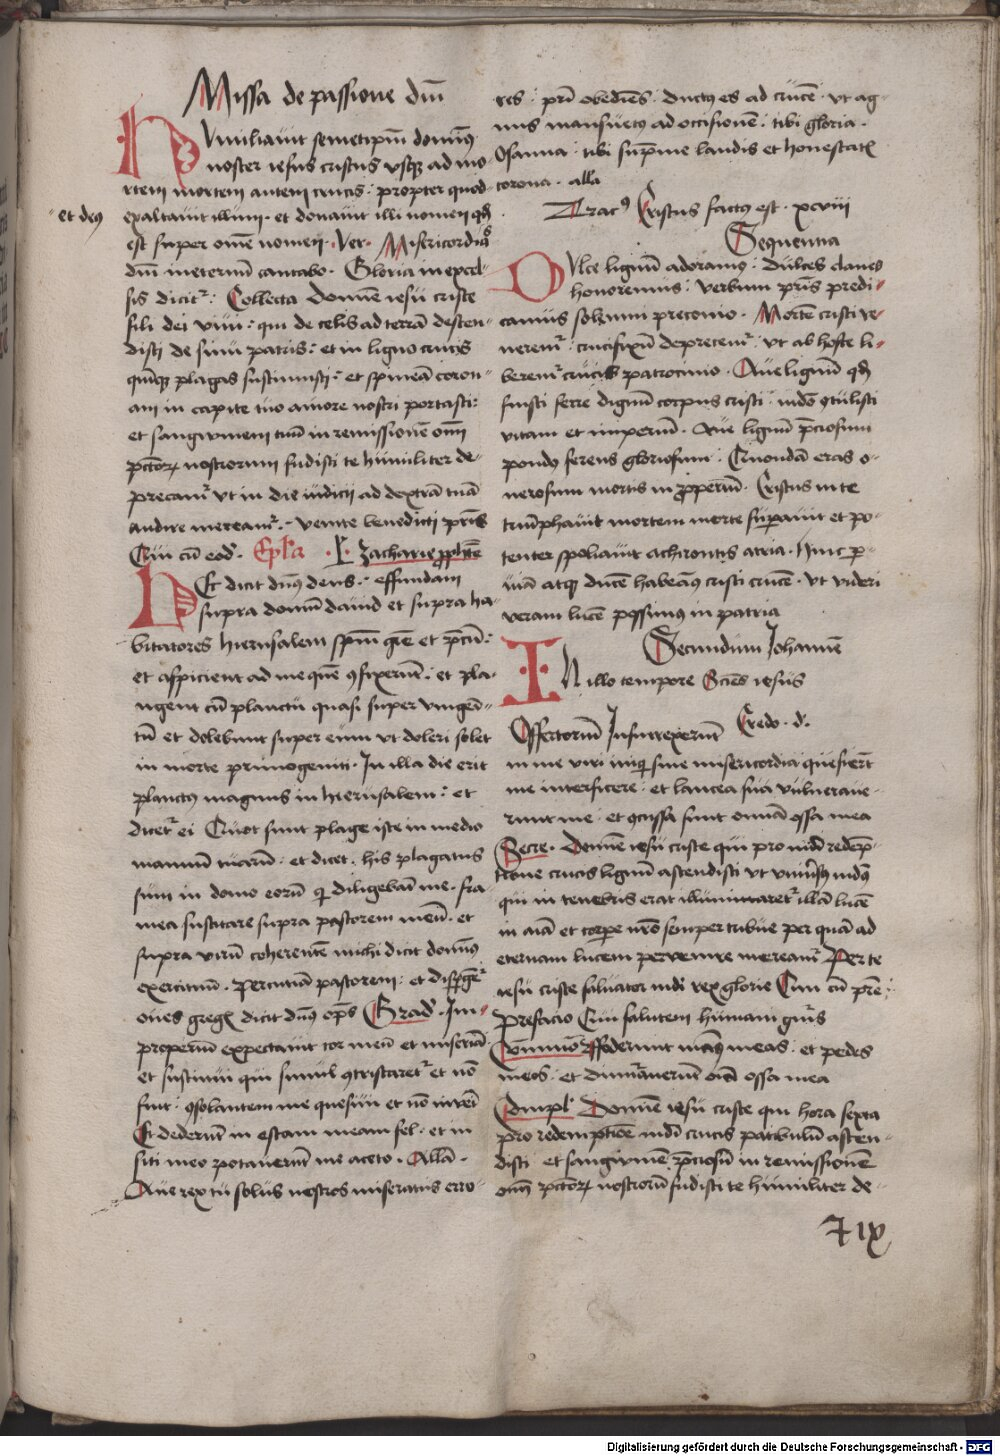 Missa de passione dnī
Humiliavit semetipm̄ domin9
noster iesus cristus usq3 ad mo
rtem mortem autem crucis : propter quod
et deus
exaltavit illum · et donavit illi nomen qd̄
est super omē nomen · Ver · Misericordias
dnī in eternū cantabo · Gloria in excel-
sis dicit᷑ : Collecta Domine iesū criste
fili dei vivi : qui de celis ad terrā descen-
disti de sinu patris : et in ligno crucis
quinq3 plagas sustinuisti : et spineā coron-
am in capite tuo amore nostri portasti :
et sanguinem tuū in remissionē om̄
pctorꝝ nostrorum fudisti te humiliter de-
precam᷑ ut in die iudicii ad dextrā tuā
audire meream᷑ · venite benedicti pr̄is
Qui cū eod᷑ · Epl̄a · L · Zacharie prophete
Hec dicit dn̄us deus : effundam
supra domū david et supra ha-
bitatores hierusalem spm̄ grē et pcū :
et aspicient ad me quē ꝯfixerūt : et pla-
ngent eū planctu quasi super unigeni-
tū et dolebunt super eum ut doleri solet
in morte primogeniti · In illa die erit
planctus magnus in hierusalem : et
dicet᷑ ei Quot sunt plage iste in medio
manuū tuarū : et dicet · his plagatus
sum in domo eorū qi diligebāt me · fra-
mea suscitare supra pastorem meū · et
supra virū coherentē michi dicit domin9
exercituū · percutiā pastorem : et dispgēt᷑
oves gregꝭ dicit dn̄us om̄ps Grad᷑ · Im-
properiū expectavit cor meū et miseriā
et sustinui qui simul ꝯtristaret᷑ et nō
fuit : ꝯsolantem me quesivi et nō inveni
Et dederūt in escam meam fel · et in
siti meo potaverūt me aceto · Allā ·
Ave rex tu solus nostros miseratus erro-
res : pr̄i obediēs · ductus es ad crucē · ut ag-
nus mansuetus ad occisionē : tibi gloria ·
Osanna : tibi supme laudis et honestatꝭ
corona · alla
Tract9 Cristus factus est · xcviii
Sequentia
Dulce lignū adoramus : dulces clavos
honoremus : verbum pr̄is predi-
camus solenni preconio · Mortē cristi ve-
nerem᷑ : crucifixū deprecem᷑ : ut ab hoste li-
berem᷑ crucis patrocinio · Ave lignū qd̄
fuisti ferre dignū corpus cristi : mūdo ꝯtulisti
vitam et imperiū · Ave lignū pciosum
pondus ferens gloriosum : Quondā eras o-
nerosum mortis improperiū · Cristus in te
triūphavit mortem morte supavit et po-
tenter spoliavit acherontis atria · Nunc p-
viā atq3 ducē habeam9 cristi crucē · ut videri
veram lucē possimus in patria
Secundum Johannē
In illo tempore Sciēs iesus
Credo · d᷑ ·
Offertoriū Insurrexerunt
in me viri iniqi sine misericordia quesierūt
me interficere : et lancea sua vulnerave-
runt me · et ꝯcussa sunt omnia ossa mea
Secre · Domine iesū criste qui pro mūdi redemp-
tione crucis lignū ascendisti ut universus mūdus
qui in tenebris erat illuminaret᷑ illā lucē
in aiā et corpe nr̄o semper tribue per quā ad
eternam lucem pervenire mereamur Per te
iesu criste salvator mūdi rex glorie Qui cū pre
Prefacio Qui salutem humani gn̄is
Communio Foderunt man9 meas : et pedes
meos : et dinumeraverūt omnia ossa mea
Compl᷑ Domine iesū criste qui hora sexta
pro redemptione mūdi crucis patibulū ascen-
disti et sanguinē pciosū in remissionē
om̄ pctorꝝ nostrorū fudisti te humiliter de-
7 ix
Digitalisierung gefördert durch die Deutsche Forschungsgemeinschaft - DFG